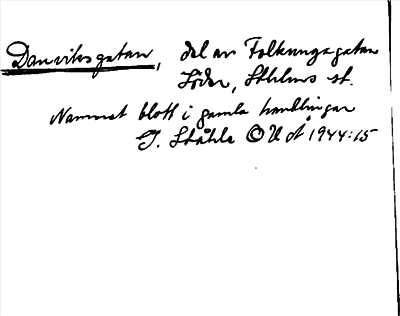 Danviksgatan, del av Folkungagatan
Söder, Sthlms st.
Namnet blott i gamla handlingar
I. Ståhle OUÅ 1944:15